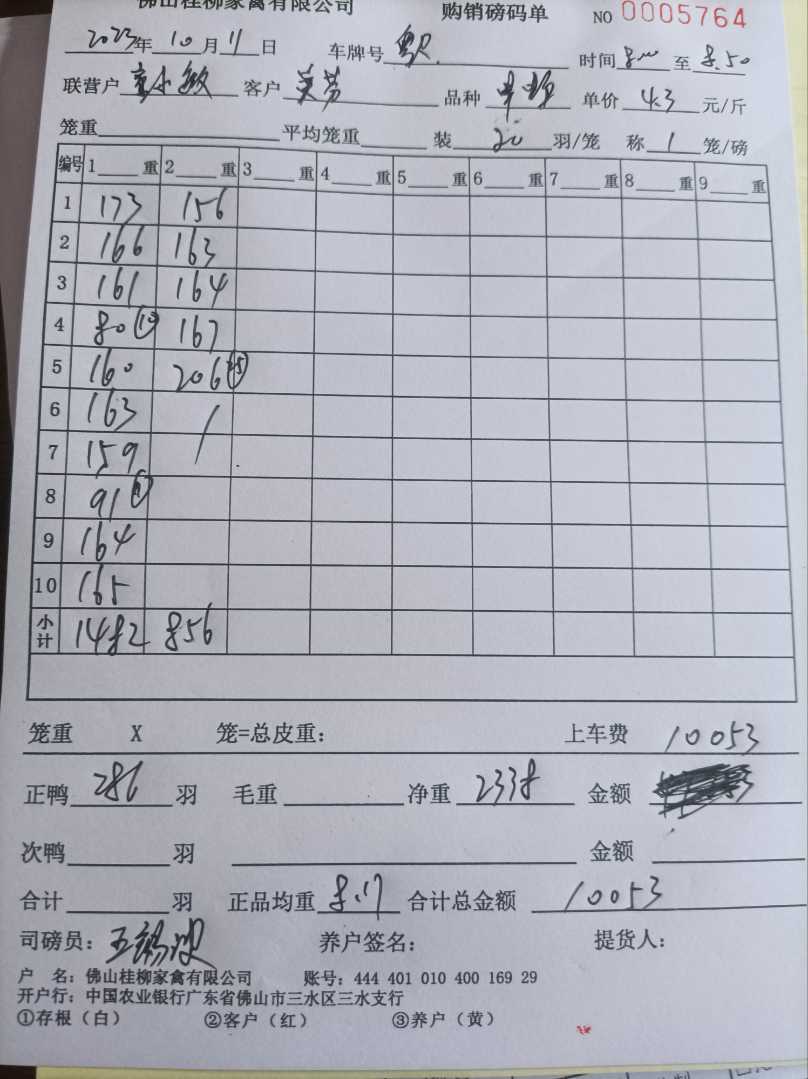 佛山桂柳家禽有限公司 购销磅码单 NO 0005764
2023年 10 月 11 日 车牌号 时间 8.00 至 8.50
联营户 客户 品种 单价 4.3 元/斤
笼重 平均笼重 装 20 羽/笼 称 1 笼/磅
编号 1 重 2 重 3 重 4 重 5 重 6 重 7 重 8 重 9 重
1 173 156
2 166 163
3 161 164
4 80 (10) 167
5 160 206
6 163
7 159
8 91
9 164
10 165
小计 1482 856
笼重 X 笼=总皮重: 上车费 10053
正鸭 286 羽 毛重 净重 2338 金额
次鸭 羽 金额
合计 羽 正品均重 8.17 合计总金额 10053
司磅员: 养户签名: 提货人:
户 名: 佛山桂柳家禽有限公司 账号: 444 401 010 400 169 29
开户行: 中国农业银行广东省佛山市三水区三水支行
①存根(白) ②客户(红) ③养户(黄)